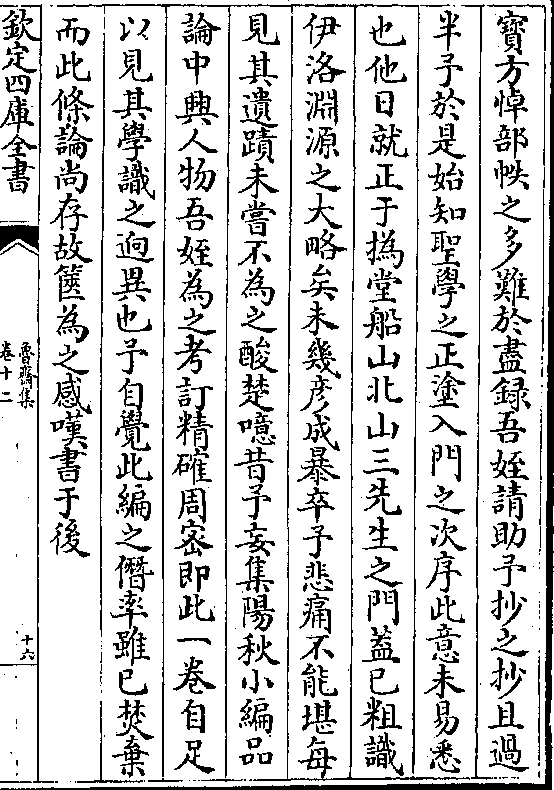 寶方悼部帙之多難於盡録吾姪請助予抄之抄且過
半予於是始知聖學之正塗入門之次序此意未易悉
也他日就正于撝堂船山北山三先生之門蓋已粗識
伊洛淵源之大略矣未幾彦成暴卒予悲痛不能堪每
見其遺蹟未嘗不為之酸楚噫昔予妄集陽秋小編品
論中興人物吾姪為之考訂精確周密即此一卷自足
以見其學識之逈異也予自覺此編之僭率雖已焚棄
而此條論尚存故篋為之感嘆書于後
欽定四庫全書
魯齋集
卷十二
十六